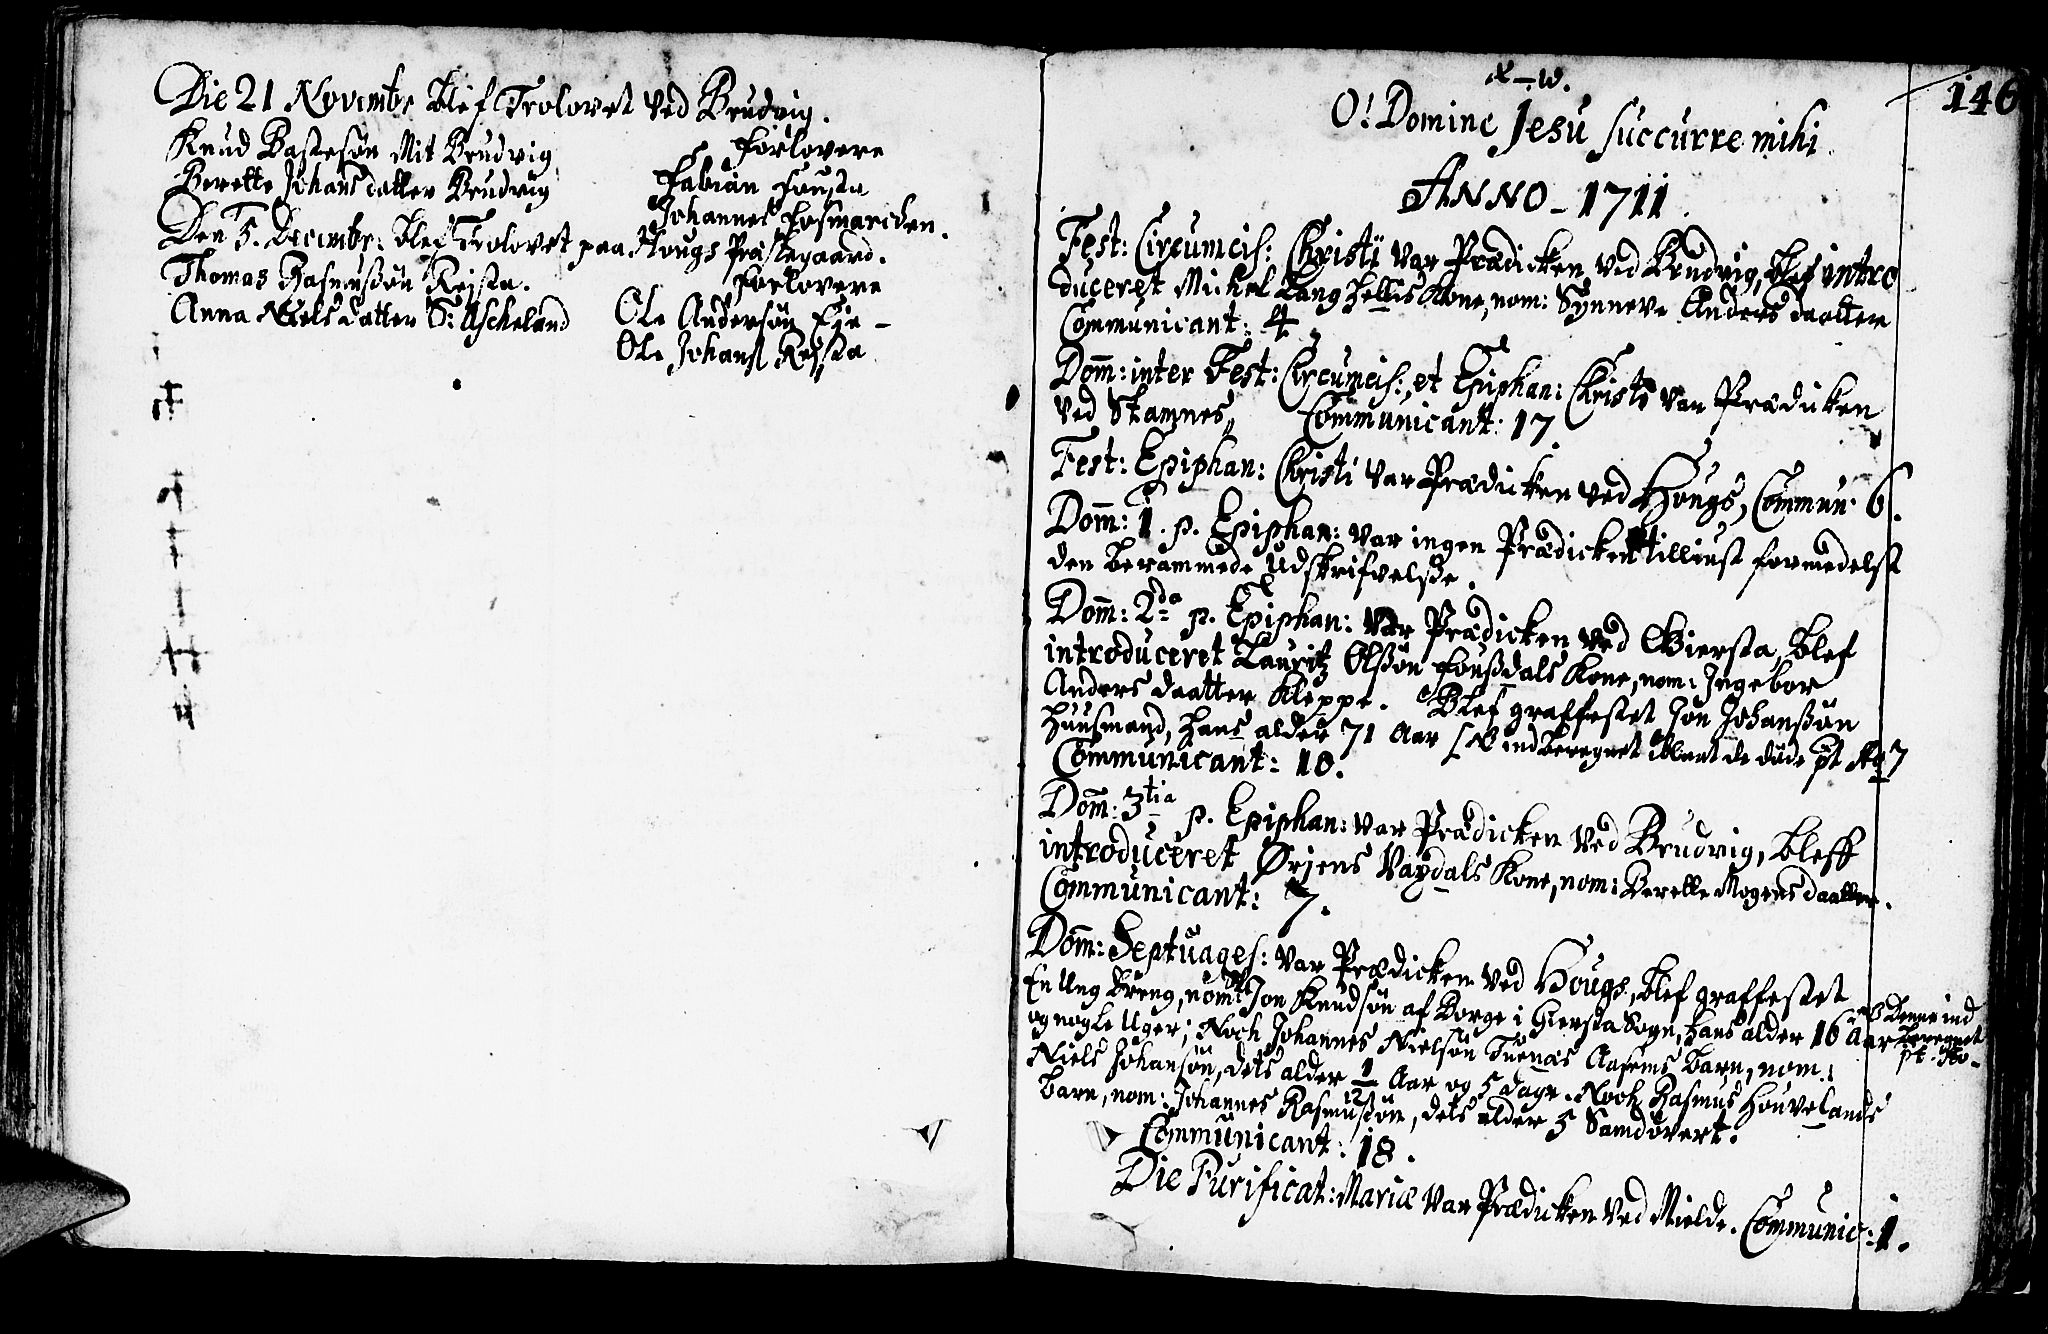 Die 21 Novembr blef Trolovet ved Brudvig.
Knud Bastesøn Mit Brudvig
Berette Johans datter Brudvig
Forlovere
Fabian Fousta
Johannes Fosmarcken.
Den 5. Decembr: blef Trolovet paa Hougs Præstegaard.
Thomas Rasmussøn Reista.
Anna Niels datter S: Ascheland
Forlovere
Ole Andersøn Eje
Ole Johans Reista
146
O! Domine Jesu succurre mihi.
ANNO - 1711.
Fest: Circumcis: Christi var Prædicken ved Brudvig, blef intro
duceret Michel Langhellis Kone, nom: Synneve Anders daatter
Communicant: 4
Dom: inter Fest: Circumcis:, et Epiphan: Christi var Prædicken
ved Stamnes, Communicant: 17.
Fest: Epiphan: Christi var Prædicken ved Hougs, Commun: 6.
Dom: 1. p. Epiphan: var ingen Prædicken tilliust formedelst
den berammede Udskrifvelsse.
Dom: 2da p. Epiphan: var Prædicken ved Giersta, blef
introduceret Lauritz Olssøn Foussdals Kone, nom: Ingebor
Anders daatter Kleppe. Blef graffestet Jon Johanssøn
Huusmand, hans alder 71 Aar [NB indberegnet iblant de døde pt Ao
Communicant: 10.
Dom: 3tia p. Epiphan: var Prædicken ved Brudvig, bleff
introduceret Ørjens Vaxdals Kone, nom: Berette Mogens daatter.
Communicant: 7.
Dom: Septuages: var Prædicken ved Hougs, blef graffestet
En Ung Dreng, nom: Jon Knudsøn af Borge i Giersta Sogn, hans alder 16 Aar
NB Denne ind
beregnet
pt. Ao
og nogle Uger; Noch Johannes Nielsøn Tuenæs Aasems barn, nom:
Niels Johansøn, dets alder 1/12 Aar og 5 dage. Noch Rasmus Houvelands
barn, nom: Johannes Rasmussøn, dets alder 5 Samdøvert.
Communicant: 18.
Die Purificat: Mariæ var Prædicken ved Mielde. Communic: 1.